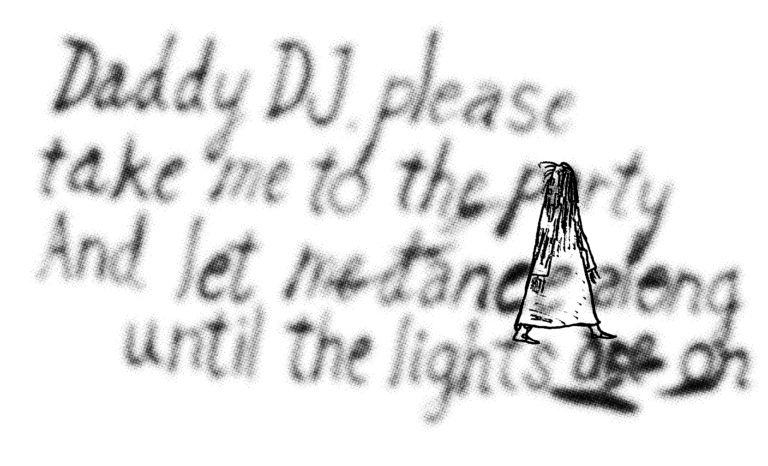 Daddy DJ, please
take me to the party
And let me dance along
until the lights are on